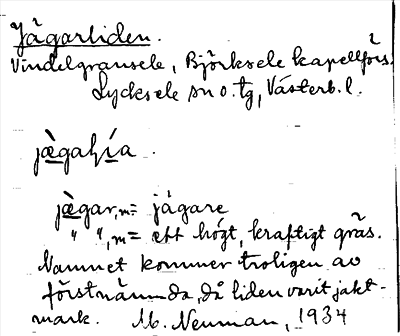 Jägarliden.
Vindelgransele, Björksele kapellförs.
Lycksele sn o. tg, Västerb. l.
jägaḷía.
jägar, m = jägare
" ", m = ett högt, kraftigt gräs.
Namnet kommer troligen av
förstnämnda, då liden varit jakt-
mark. M. Neuman, 1934